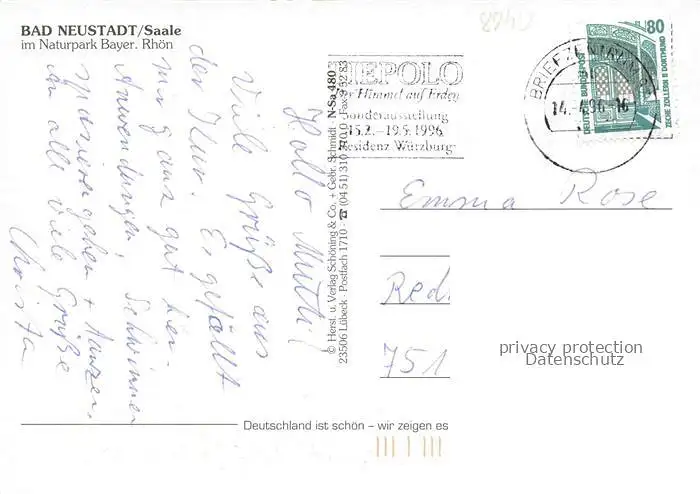 BAD NEUSTADT/Saale
im Naturpark Bayer. Rhön
8740
Hallo Mutti!
Viele Grüße aus
der Kur. Es gefällt
mir ganz gut hier.
Anwendungen, Schwimmen
spazierengehen + tanzen.
An alle viele Grüße
Christa
N-Sa 480
© Herst. u. Verlag Schöning & Co. + Gebr. Schmidt
23506 Lübeck · Postfach 1710 - ☎ (04 51) 310
TIEPOLO
Der Himmel auf Erden
Sonderausstellung
15.2. – 19.5.1996
Residenz Würzburg
BRIEFZENTRUM
14.-4.96-16
80
DEUTSCHE BUNDESPOST
ZECHE ZOLLERN II DORTMUND
Emma Rose
Red.
751
privacy protection
Datenschutz
Deutschland ist schön – wir zeigen es